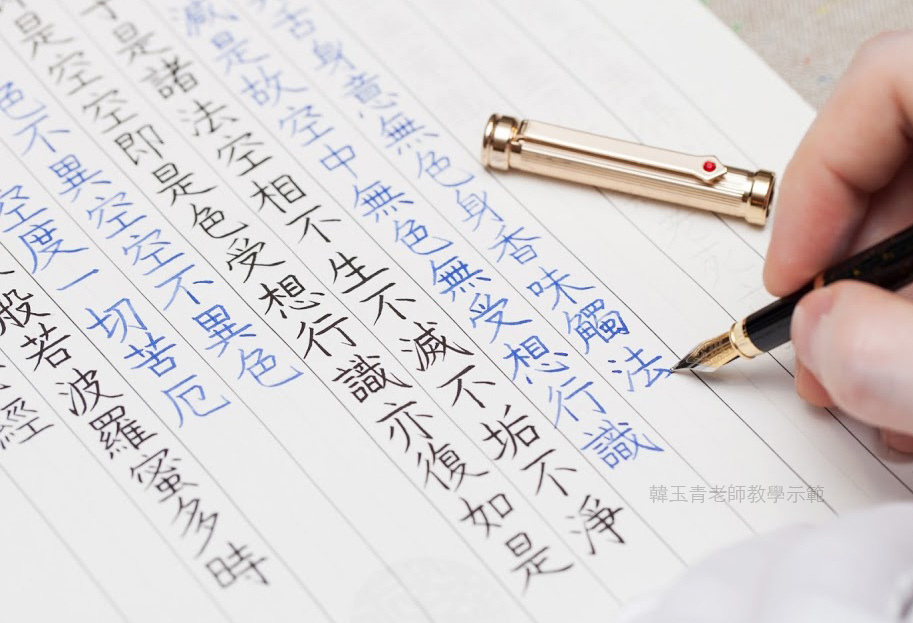 舌身意無色身香味觸法
減是故空中無色無受想行識
是諸法空相不生不滅不垢不淨
即是空空即是色受想行識亦復如是
色不異空空不異色
空度一切苦厄
般若波羅蜜多時
經
韓玉青老師教學示範